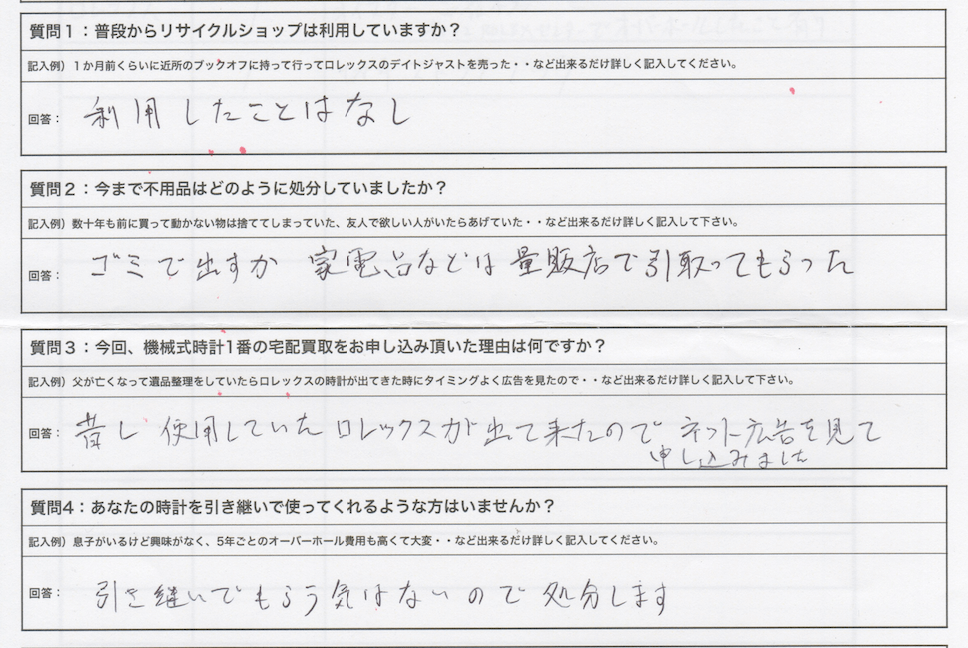 質問1：普段からリサイクルショップは利用していますか？
記入例）1か月前くらいに近所のブックオフに持って行ってロレックスのデイトジャストを売った・・など出来るだけ詳しく記入してください。
回答： 利用したことはなし
質問2：今まで不用品はどのように処分していましたか？
記入例）数十年も前に買って動かない物は捨ててしまっていた、友人で欲しい人がいたらあげていた・・など出来るだけ詳しく記入して下さい。
回答： ゴミで出すか 家電品などは量販店で引取ってもらった
質問3：今回、機械式時計1番の宅配買取をお申し込み頂いた理由は何ですか？
記入例）父が亡くなって遺品整理をしていたらロレックスの時計が出てきた時にタイミングよく広告を見たので・・など出来るだけ詳しく記入して下さい。
回答： 昔し 使用していたロレックスが出て来たので ネット広告を見て
申し込みました
質問4：あなたの時計を引き継いで使ってくれるような方はいませんか？
記入例）息子がいるけど興味がなく、5年ごとのオーバーホール費用も高くて大変・・など出来るだけ詳しく記入してください。
回答： 引き継いでもらう気はないので 処分します